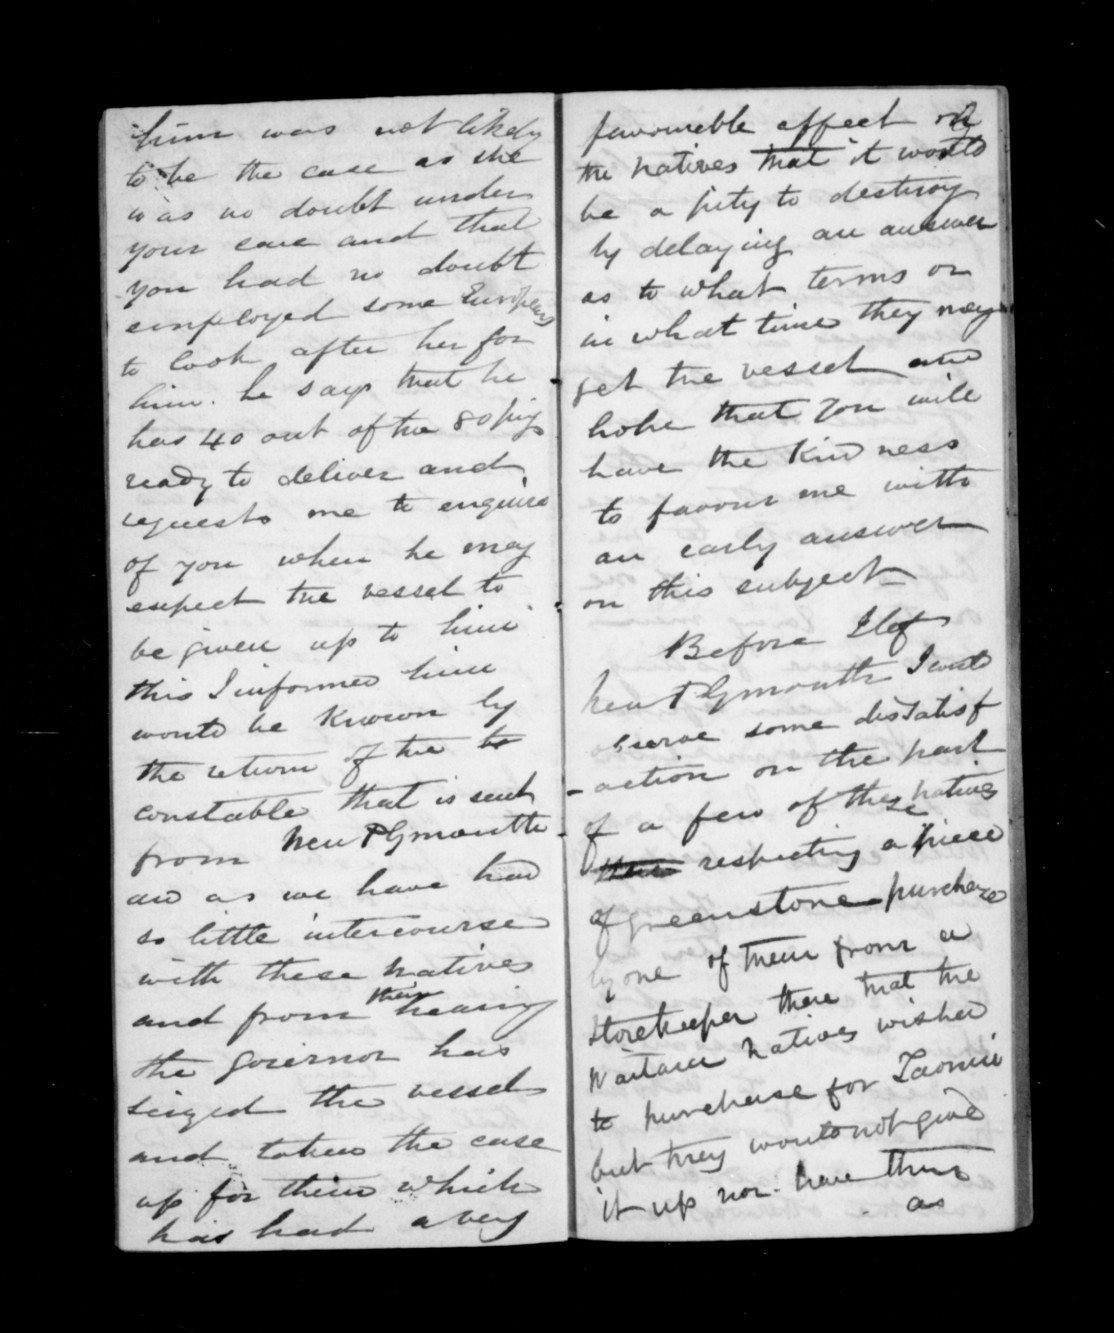 him was not likely
to be the case as she
was no doubt under
your care and that
you had no doubt
employed some Europeans
to look after her for
him. he says that he
has 40 out of the 80 pigs
ready to deliver and
requests me to enquire
of you when he may
expect the vessel to
be given up to him
this I informed him
would be known by
the return of the to
constable that is sent
from New Plymouth
and as we have had
so little intercourse
with these natives
and from their hearing
the governor has
seized the vessel
and taken the case
up for them which
has had a very
favourable affect on
the natives that it would
be a pity to destroy
by delaying an answer
as to what terms or
in what time they may
get the vessel and
hope that you will
have the kindness
to favour me with
an early answer
on this subject
Before I left
New Plymouth I could
observe some dissatisf
action on the part
of a few of these natives
respecting a piece
of greenstone purchase
by one of them from a
storekeeper there that the
Waitara natives wished
to purchase for Taonui
but they would not give
it up nor have they
as